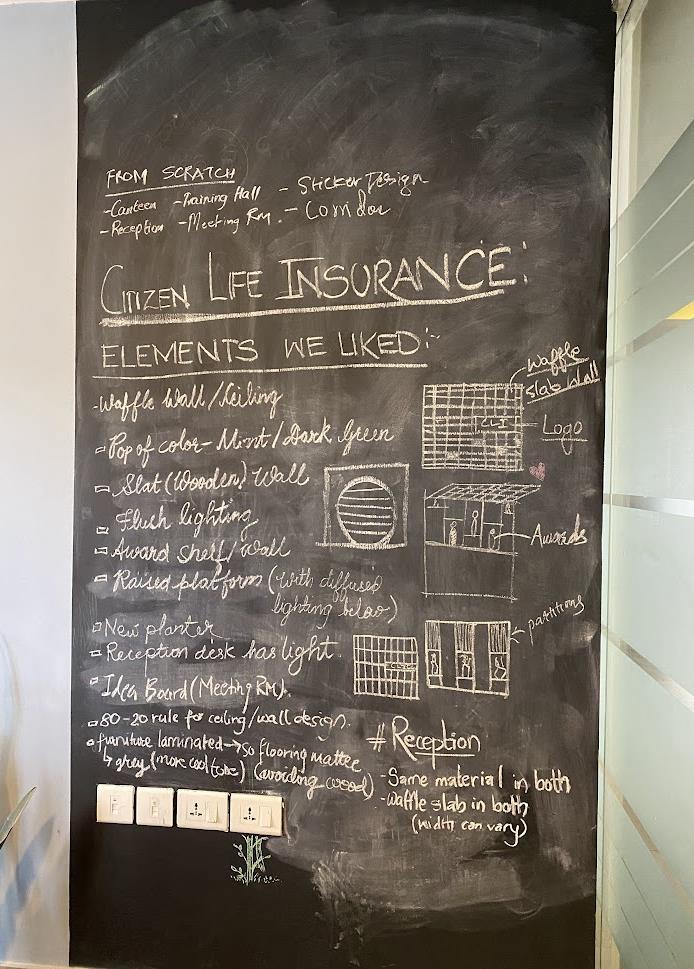 FROM SCRATCH
-Canteen -Training Hall - Sticker Design
-Reception -Meeting RM. - Corridor
CITIZEN LIFE INSURANCE:
ELEMENTS WE LIKED:-
-Waffle Wall/Ceiling
Pop of color- Mint/Dark Green
Slat (Wooden) Wall
Flush lighting
Award Shelf/Wall
Raised platform (with diffused
lighting below)
New planter
Reception desk has light.
Idea Board (Meeting RM).
80-20 rule for ceiling/wall design.
furniture laminated → so flooring matte
↳ grey (more cool tone) (avoiding wood)
Waffle
Slab Wall
CLI
Logo
Awards
partitions
# Reception
-Same material in both
-waffle slab in both
(width can vary)